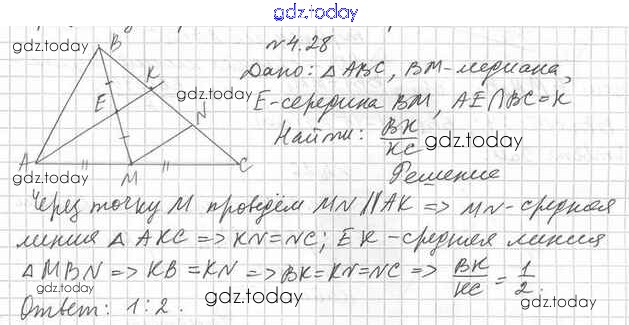 gdz.today
№ 4.28
gdz.today
Дано: △ ABC, BM-медиана,
gdz.today
E-середина BM, AE∩BC=K
Найти: BK/KC
gdz.today
Решение
B
K
E
N
A
M
C
gdz.today
Через точку M проведём MN∥AK => MN-средняя
линия △ AKC => KN=NC; EK-средняя линия
△ MBN => KB=KN => BK=KN=NC => BK/KC = 1/2.
Ответ: 1:2.
gdz.today
gdz.today